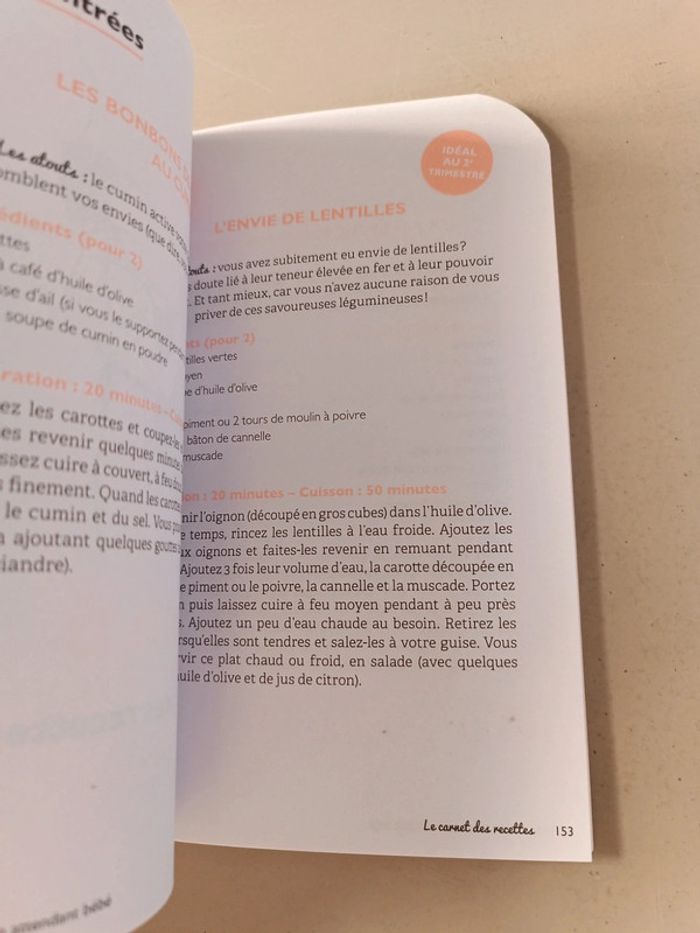 LES BONBONS
Les atouts : le cumin active
vos envies (que dire
(pour 2)
café d'huile d'olive
d'ail (si vous le supportez
soupe de cumin en poudre
: 20 minutes –
les carottes et coupez-les
revenir quelques minutes
cuire à couvert, à feu
finement. Quand les carottes
le cumin et du sel. Vous
ajoutant quelques gouttes
attendant bébé
IDÉAL
AU 2e
TRIMESTRE
L'ENVIE DE LENTILLES
: vous avez subitement eu envie de lentilles ?
doute lié à leur teneur élevée en fer et à leur pouvoir
. Et tant mieux, car vous n'avez aucune raison de vous
priver de ces savoureuses légumineuses !
(pour 2)
vertes
d'huile d'olive
piment ou 2 tours de moulin à poivre
bâton de cannelle
muscade
: 20 minutes – Cuisson : 50 minutes
l'oignon (découpé en gros cubes) dans l'huile d'olive.
temps, rincez les lentilles à l'eau froide. Ajoutez les
oignons et faites-les revenir en remuant pendant
Ajoutez 3 fois leur volume d'eau, la carotte découpée en
piment ou le poivre, la cannelle et la muscade. Portez
puis laissez cuire à feu moyen pendant à peu près
. Ajoutez un peu d'eau chaude au besoin. Retirez les
sont tendres et salez-les à votre guise. Vous
ce plat chaud ou froid, en salade (avec quelques
d'olive et de jus de citron).
Le carnet des recettes 153